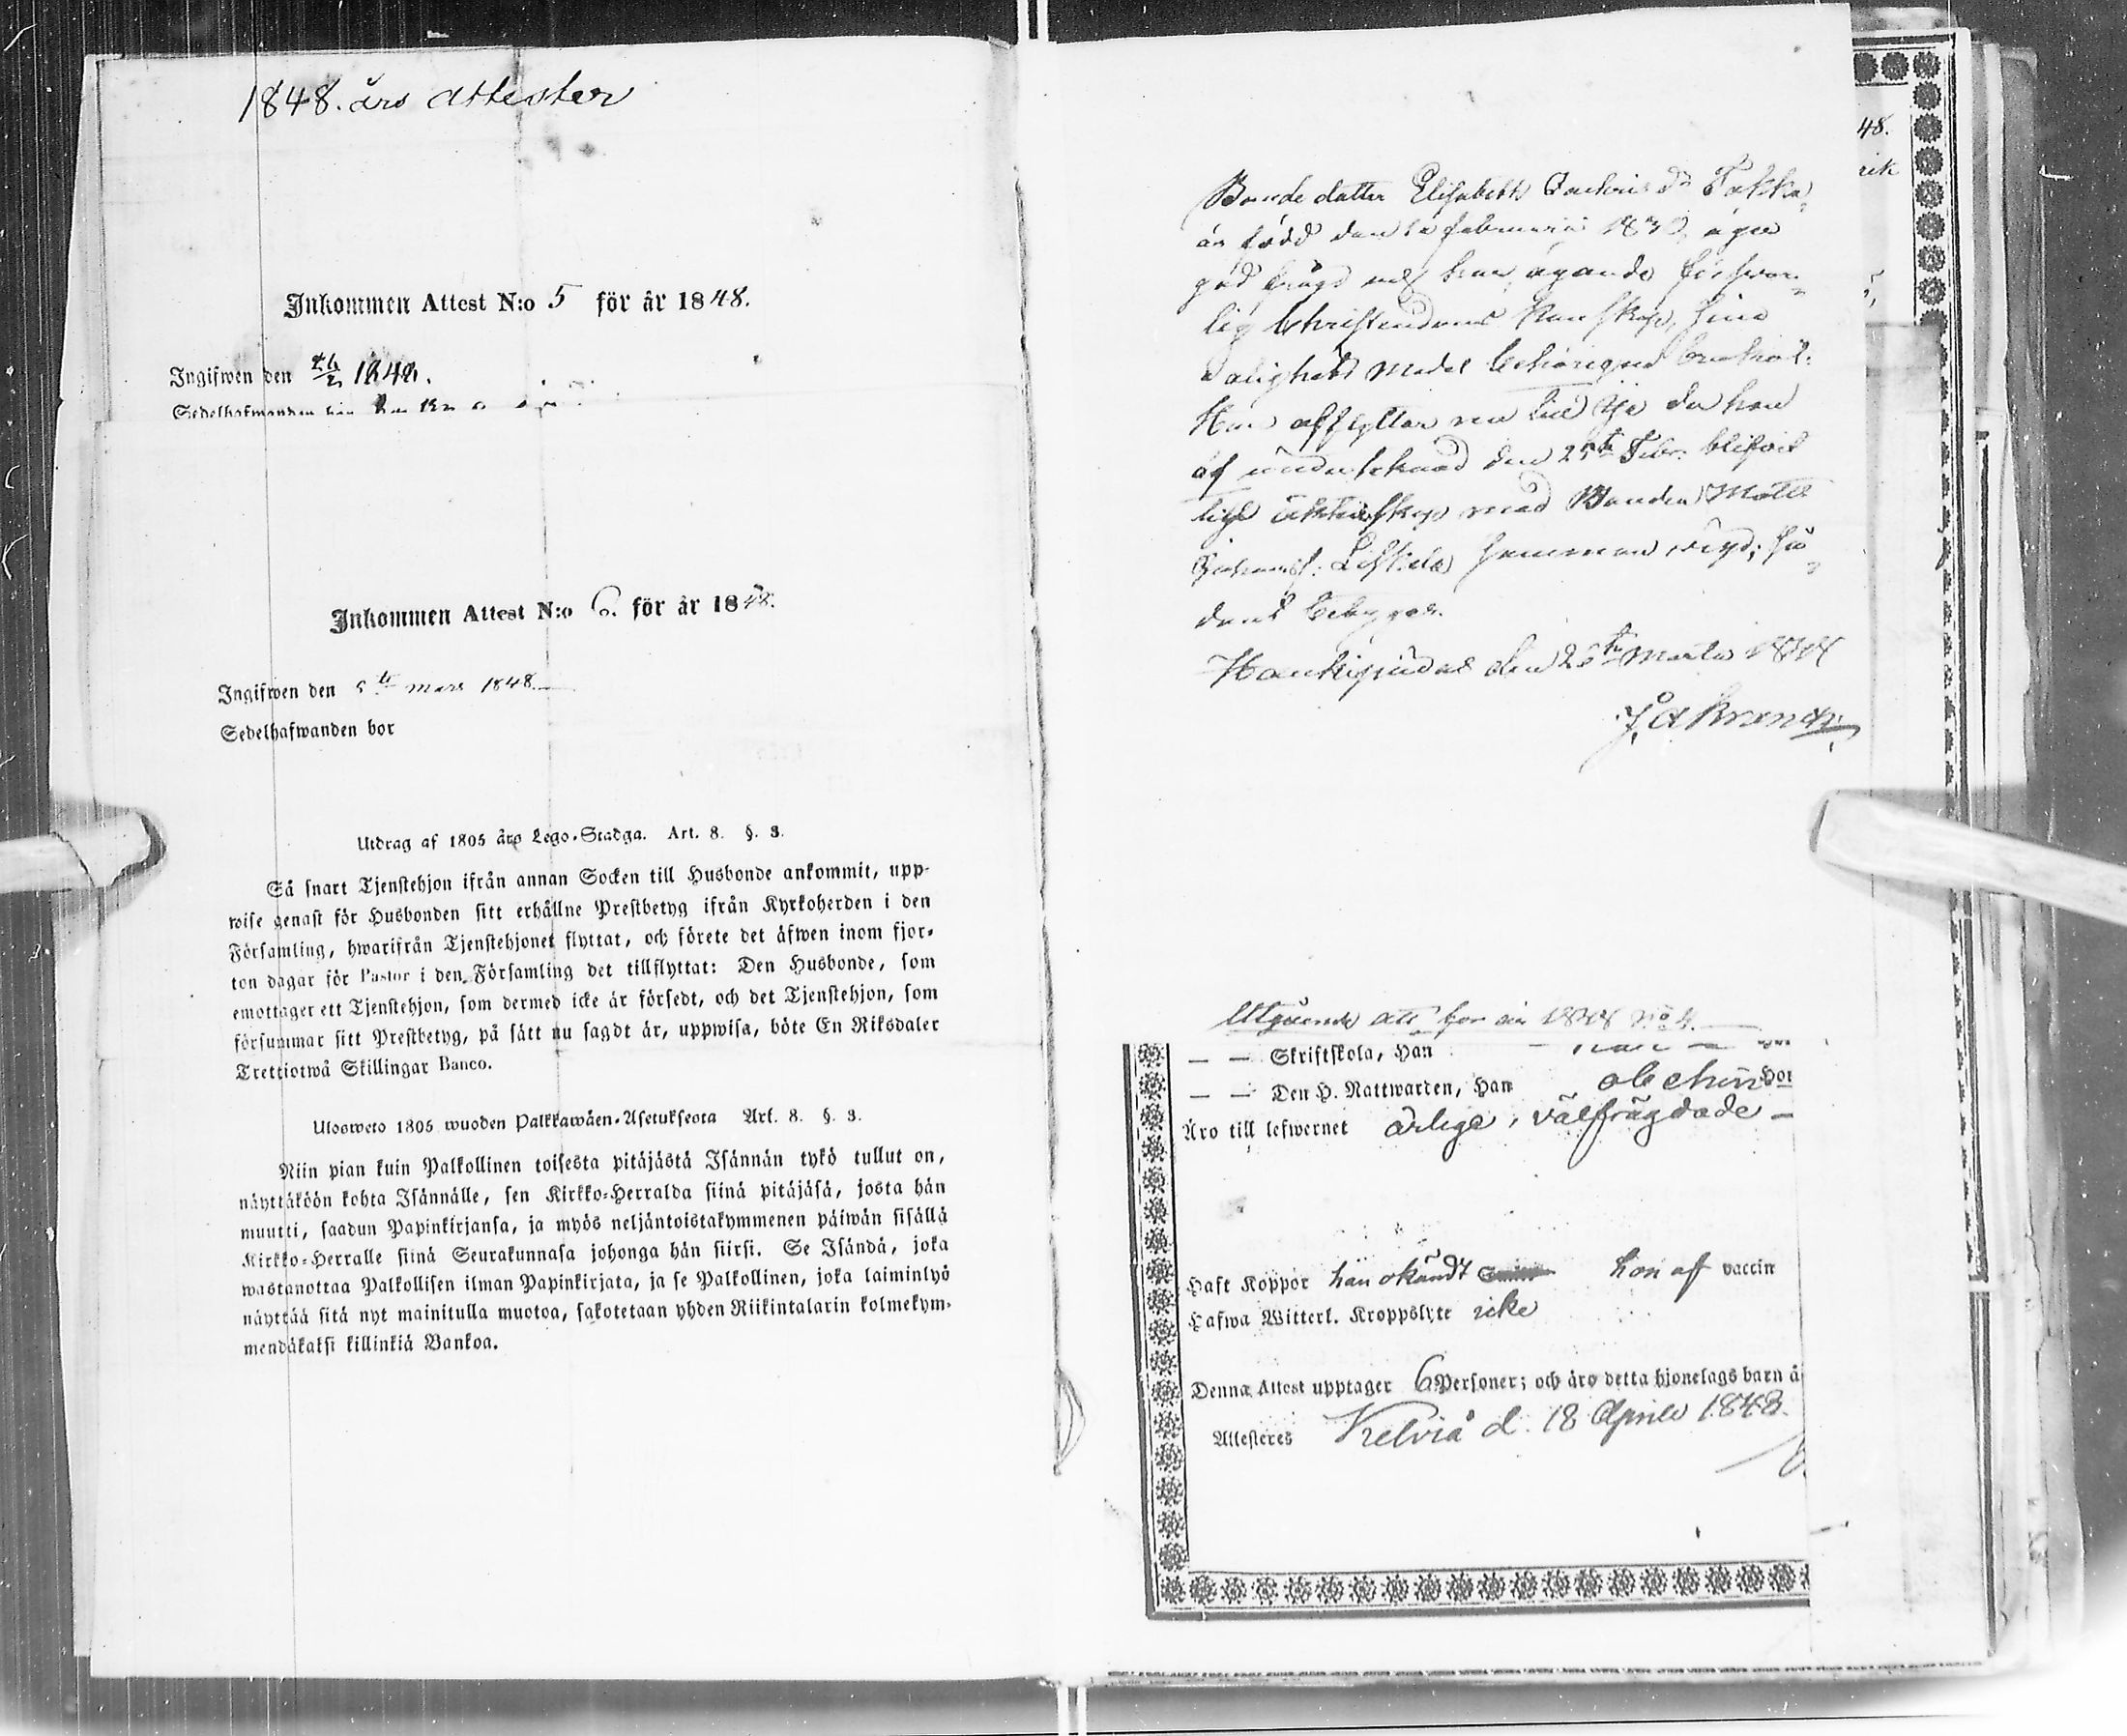 1848. års attester
Inkommen Attest N:o 5 för år 1848.
Ingifwen den 1848.
Sedelhafwanden
Inkommen Attest N:o 6. för år 1848.
Ingifwen den 5te mars 1848.
Sedelhafwanden bor
Utdrag af 1805 års Lego-Stadga. Art. 8. §. 3.
Så snart Tjenstehjon ifrån annan Socken till Husbonde ankommit, upp-
wise genast för Husbonden sitt erhållne Prestbetyg ifrån Kyrkoherden i den
Församling, hwarifrån Tjenstehjonet flyttat, och förete det äfwen inom fjor-
ton dagar för Pastor i den Församling det tillflyttat: Den Husbonde, som
emottager ett Tjenstehjon, som dermed icke är försedt, och det Tjenstehjon, som
försummar sitt Prestbetyg, på sätt nu sagdt är, uppwisa, böte En Riksdaler
Trettiotwå Skillingar Banco.
Ulosweto 1805 wuoden Palkkawäen-Asetuksesta Art. 8. §. 3.
Niin pian kuin Palkollinen toisesta pitäjästä Isännän tykö tullut on,
näyttäköön kohta Isännälle, sen Kirkko-Herralda siinä pitäjäsä, josta hän
muutti, saadun Papinkirjansa, ja myös neljäntoistakymmenen päiwän sisällä
Kirkko-Herralle siinä Seurakunnasa johonga hän siirsi. Se Isändä, joka
wastanottaa Palkollisen ilman Papinkirjata, ja se Palkollinen, joka laiminlyö
näyttää sitä nyt mainitulla muotoa, sakotetaan yhden Riikintalarin kolmekym-
mendäkaksi killinkiä Bankoa.
48.
rik
Bonde dotter Elisabeth Tokka
är född den februarii 1830, äger
god frägd och hon ägande förswar-
lig Christendoms Kunskap, sina
Salighets Medel behörigen brukat.
Hon afflyttar nu till Ijo der hon
af undertecknad den 25te Febr. blifvit
wigd äktenskap med Bonden Matts
hemman wigd; så-
dant betygar.
Haukipudas den 26te Martii 1848
Utgående att för år 1848 No 4.
— — Skriftskola, Han
— — Den H. Nattwarden, Han och hon Hon
Äro till lefwernet ärlige, välfrägdade —
Haft Koppor han okändt hon af vaccin
Hafwa Witterl. Kroppslyte icke
Denna Attest upptager 6 Personer; och äro detta hjonelags barn å
Attesteres Kelviå d. 18 Aprile 1848.